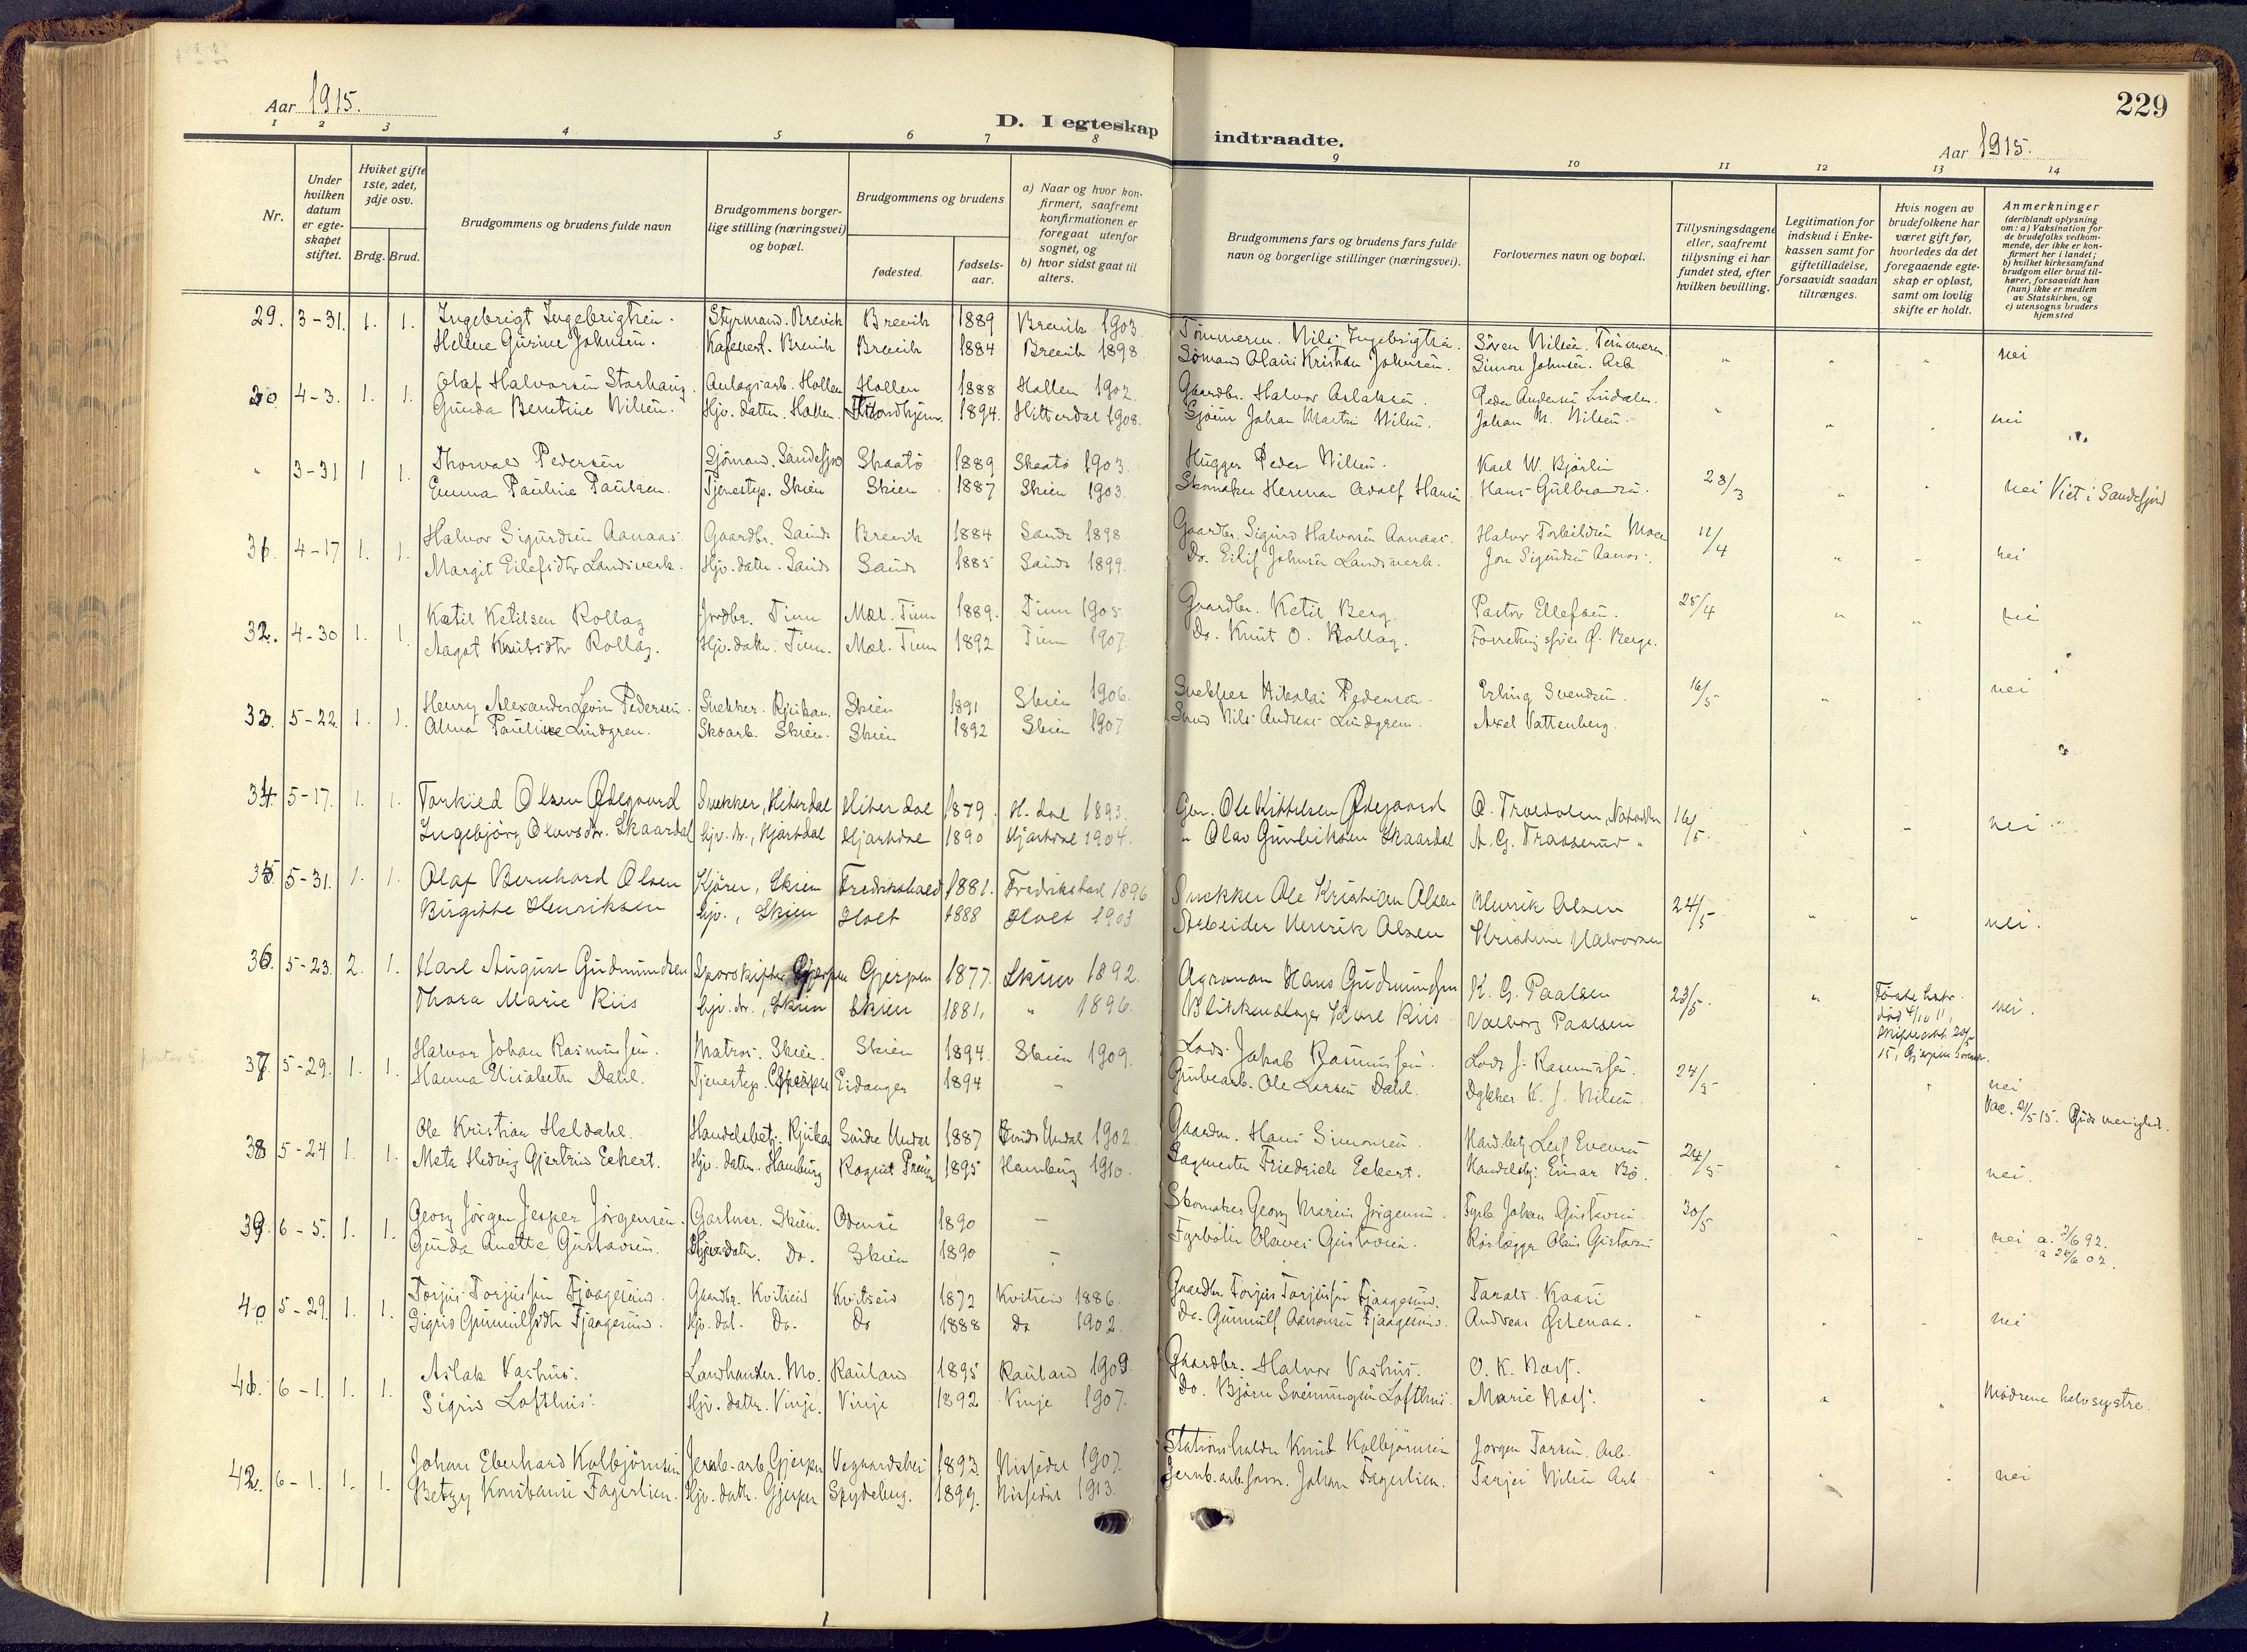 229
Aar 1915.
D. I egteskap indtraadte.
Aar 1915.
1 2 3 4 5 6 7 8 9 10 11 12 13 14
Nr.
Under hvilken datum er egteskapet stiftet.
Hviket gifte 1ste, 2det, 3dje osv.
Brdg. Brud.
Brudgommens og brudens fulde navn
Brudgommens borgerlige stilling (næringsvei) og bopæl.
Brudgommens og brudens
fødested.
fødselsaar.
a) Naar og hvor konfirmert, saafremt konfirmationen er foregaat utenfor sognet, og
b) hvor sidst gaat til alters.
Brudgommens fars og brudens fars fulde navn og borgerlige stillinger (næringsvei).
Forlovernes navn og bopæl.
Tillysningsdagene eller, saafremt tillysning ei har fundet sted, efter hvilken bevilling.
Legitimation for indskud i Enkekassen samt for giftetilladelse, forsaavidt saadan tiltrænges.
Hvis nogen av brudefolkene har været gift før, hvorledes da det foregaaende egteskap er opløst, samt om lovlig skifte er holdt.
Anmerkninger (deriblandt oplysning om: a) Vaksination for de brudefolks vedkommende, der ikke er konfirmert her i landet; b) hvilket kirkesamfund brudgom eller brud tilhører, forsaavidt han (hun) ikke er medlem av Statskirken, og c) utensogns bruders hjemsted
29. 3-31. 1. 1. Ingebrigt Ingebrigtsen. Styrmand. Brevik Brevik 1889 Brevik 1903. Tømmerm. Nils Ingebrigtsen. Søren Nilsen. Tømmerm.
Helene Gurine Johnsen. Brevik Brevik 1884 Brevik 1898 Sømand Olaus Kristian Johnsen. Simon Johnsen. Arb. " " " nei
30. 4-3. 1. 1. Olaf Halvorsen Storhaug. Anlægsarb. Hollen Hollen 1888 Hollen 1902. Gaardbr. Halvor Aslaksen. Peder Andersen
Gunda Berntine Nilsen. Hjv. datter. Hollen. 1894. Hitterdal 1908. Johan Martin Nilsen. Johan M. Nilsen. " " " nei
" 3-31 1 1. Thorvald Pedersen Sjömand. Sandefjord Skaatö 1889 Skaatö 1903. Hugger Peder Nilsen. Karl W. Bjørlin
Emma Pauline Paulsen. Tjenestep. Skien Skien 1887 Skien 1903. Skomaker Herman Adolf Hansen Hans Gulbrandsen. 28/3 " " nei Viet i Sandefjord
31. 4-17 1. 1. Halvor Sigurdsen Aanaas. Gaardbr. Saude Brevik 1884 Saude 1898. Gaardbr. Sigurd Halvorsen Aanaas. Halvor Torkildsen Moen 11/4
Margit Eilefsdtr Landsverk. Hjv. datter. Saude Saude 1885 Saude 1899. Do. Eilif Johnsen Landsverk. Jon Sigurdsen Aanas. " " nei
32. 4-30 1. 1. Ketil Ketilsen Rollag Jordbr. Tinn Mæl. Tinn 1889. Tinn 1905 Gaardbr. Ketil Berg. Pastor Ellefsen. 25/4
Aagot Knutsdtr Rollag. Hjv. datter. Tinn. Mæl. Tinn 1892 Tinn 1907. Do. Knut O. Rollag. " " nei
33. 5-22 1. 1. Henry Alexander Levin Pedersen. Snekker. Rjukan. Skien 1891 Skien 1906. Snekker Nikolai Pedersen. Erling Svendsen. 16/5 " " nei
Alma Pauline Lindgren. Skoarb. Skien. Skien 1892 Skien 1907 Smed Nils Andreas Lindgren. Axel Vattenberg.
34. 5-17. 1. 1. Torkild Olsen Ødegaard Snekker, Hiterdal Hiterdal 1879. H. dal 1893. Gbr. Ole Kittelsen Ødegaard O. Troedolen, Notodden 16/5
Ingebjørg Olavsdtr. Skaardal Hjv. dr., Hjartdal Hjartdal 1890 Hjartdal 1904. " Olav Gunleiksen Skaardal A. G. Traaserud " " " nei
35. 5-31. 1. 1. Olaf Bernhard Olsen Kjører, Skien Fredrikshald 1881. Fredrikstad 1896 Snekker Ole Kristian Olsen Henrik Olsen 24/5
Birgitte Henriksen hjv., Skien Holt 1888 Holt 1903 Arbeider Henrik Olsen Kristine Halvorsen " " nei.
36. 5-23. 2. 1. Karl August Gudmundsen Gjerpen Gjerpen 1877. Skien 1892. Agronom Hans Gudmundsen K. G. Paalsen 23/5. " Første hustr. død 4/10 11,
Thora Marie Riis hjv. dr., Skien Skien 1881, " 1896. Blikkenslager Karl Riis Valborg Paalsen 15, Gjerpen nei.
37. 5-29. 1. 1. Halvor Johan Rasmussen. Matros. Skien. Skien 1894. Skien 1909. Lods Jakob Rasmussen. Lods J. Rasmussen. 24/5
Hanna Elisabeth Dahl. Tjenestep. Gjerpen Eidanger 1894 - Grubearb. Ole Larsen Dahl. Dykker K. J. Nilsen. nei Vac. 21/5 15. Guds menighed.
38 5-24 1. 1. Ole Kristian Heldahl. Handelsbet. Rjukan Søndre Undal 1887 Søndre Undal 1902. Gaardm. Hans Simonsen. Hand.betj. Leif Evensen 24/5
Meta Hedvig Gjertrud Eckert. Hjv. datter. Hamburg 1895 Hamburg 1910. Sagmester Friedrich Eckert. Handelsbj. Einar Bö. " " nei.
39. 6-5. 1. 1. Georg Jörgen Jesper Jörgensen. Gartner. Skien. Odense 1890 - Skomaker Georg Marius Jörgensen. Fyrb. Johan Gustavsen. 30/5
Gunda Anette Gustavsen. Hjv. datter. Do. Skien 1890 - Fyrböter Olaves Gustavsen. Rørlægger Olaus Gustavsen " " nei a. 21/6 92.
a 26/6 02.
40 5-29. 1. 1. Torjus Torjussen Fjaagesund. Gaardbr. Kvitseid Kvitseid 1872 Kvitseid 1886. Gaardbr. Torjus Torjussen Fjaagesund. Taralt Kaasi
Sigrid Gunnulfsdtr Fjaagesund. Hjv. dat. Do. Do 1888 Do 1902. Do. Gunnulf Aanonsen Fjaagesund. Andreas Østenaa. " " nei
41. 6-1. 1. 1. Aslak Vashus. Landhandler. Mo. Rauland 1895 Rauland 1909. Gaardbr. Halvor Vashus. O. K. Næss.
Sigrid Lofthus. Hjv. datter. Vinje. Vinje 1892 Vinje 1907. Do. Björn Sveinungsen Lofthus. Marie Næss. " " " Mødrene halvsøstre.
42. 6-1. 1. 1. Johan Eberhard Kolbjörnsen Jernb-arb. Gjerpen Vegaardshei 1893. Nissedal 1907. Stationsholder Knud Kolbjörnsen Jørgen Tarsen. Arb.
Betzy Konstanse Fagerlien. Hjv. datter. Gjerpen Spydeberg. 1899. Nissedal 1913. Jernb. arb. form. Johan Fagerlien. Terjei Nilsen Arb. " " " nei